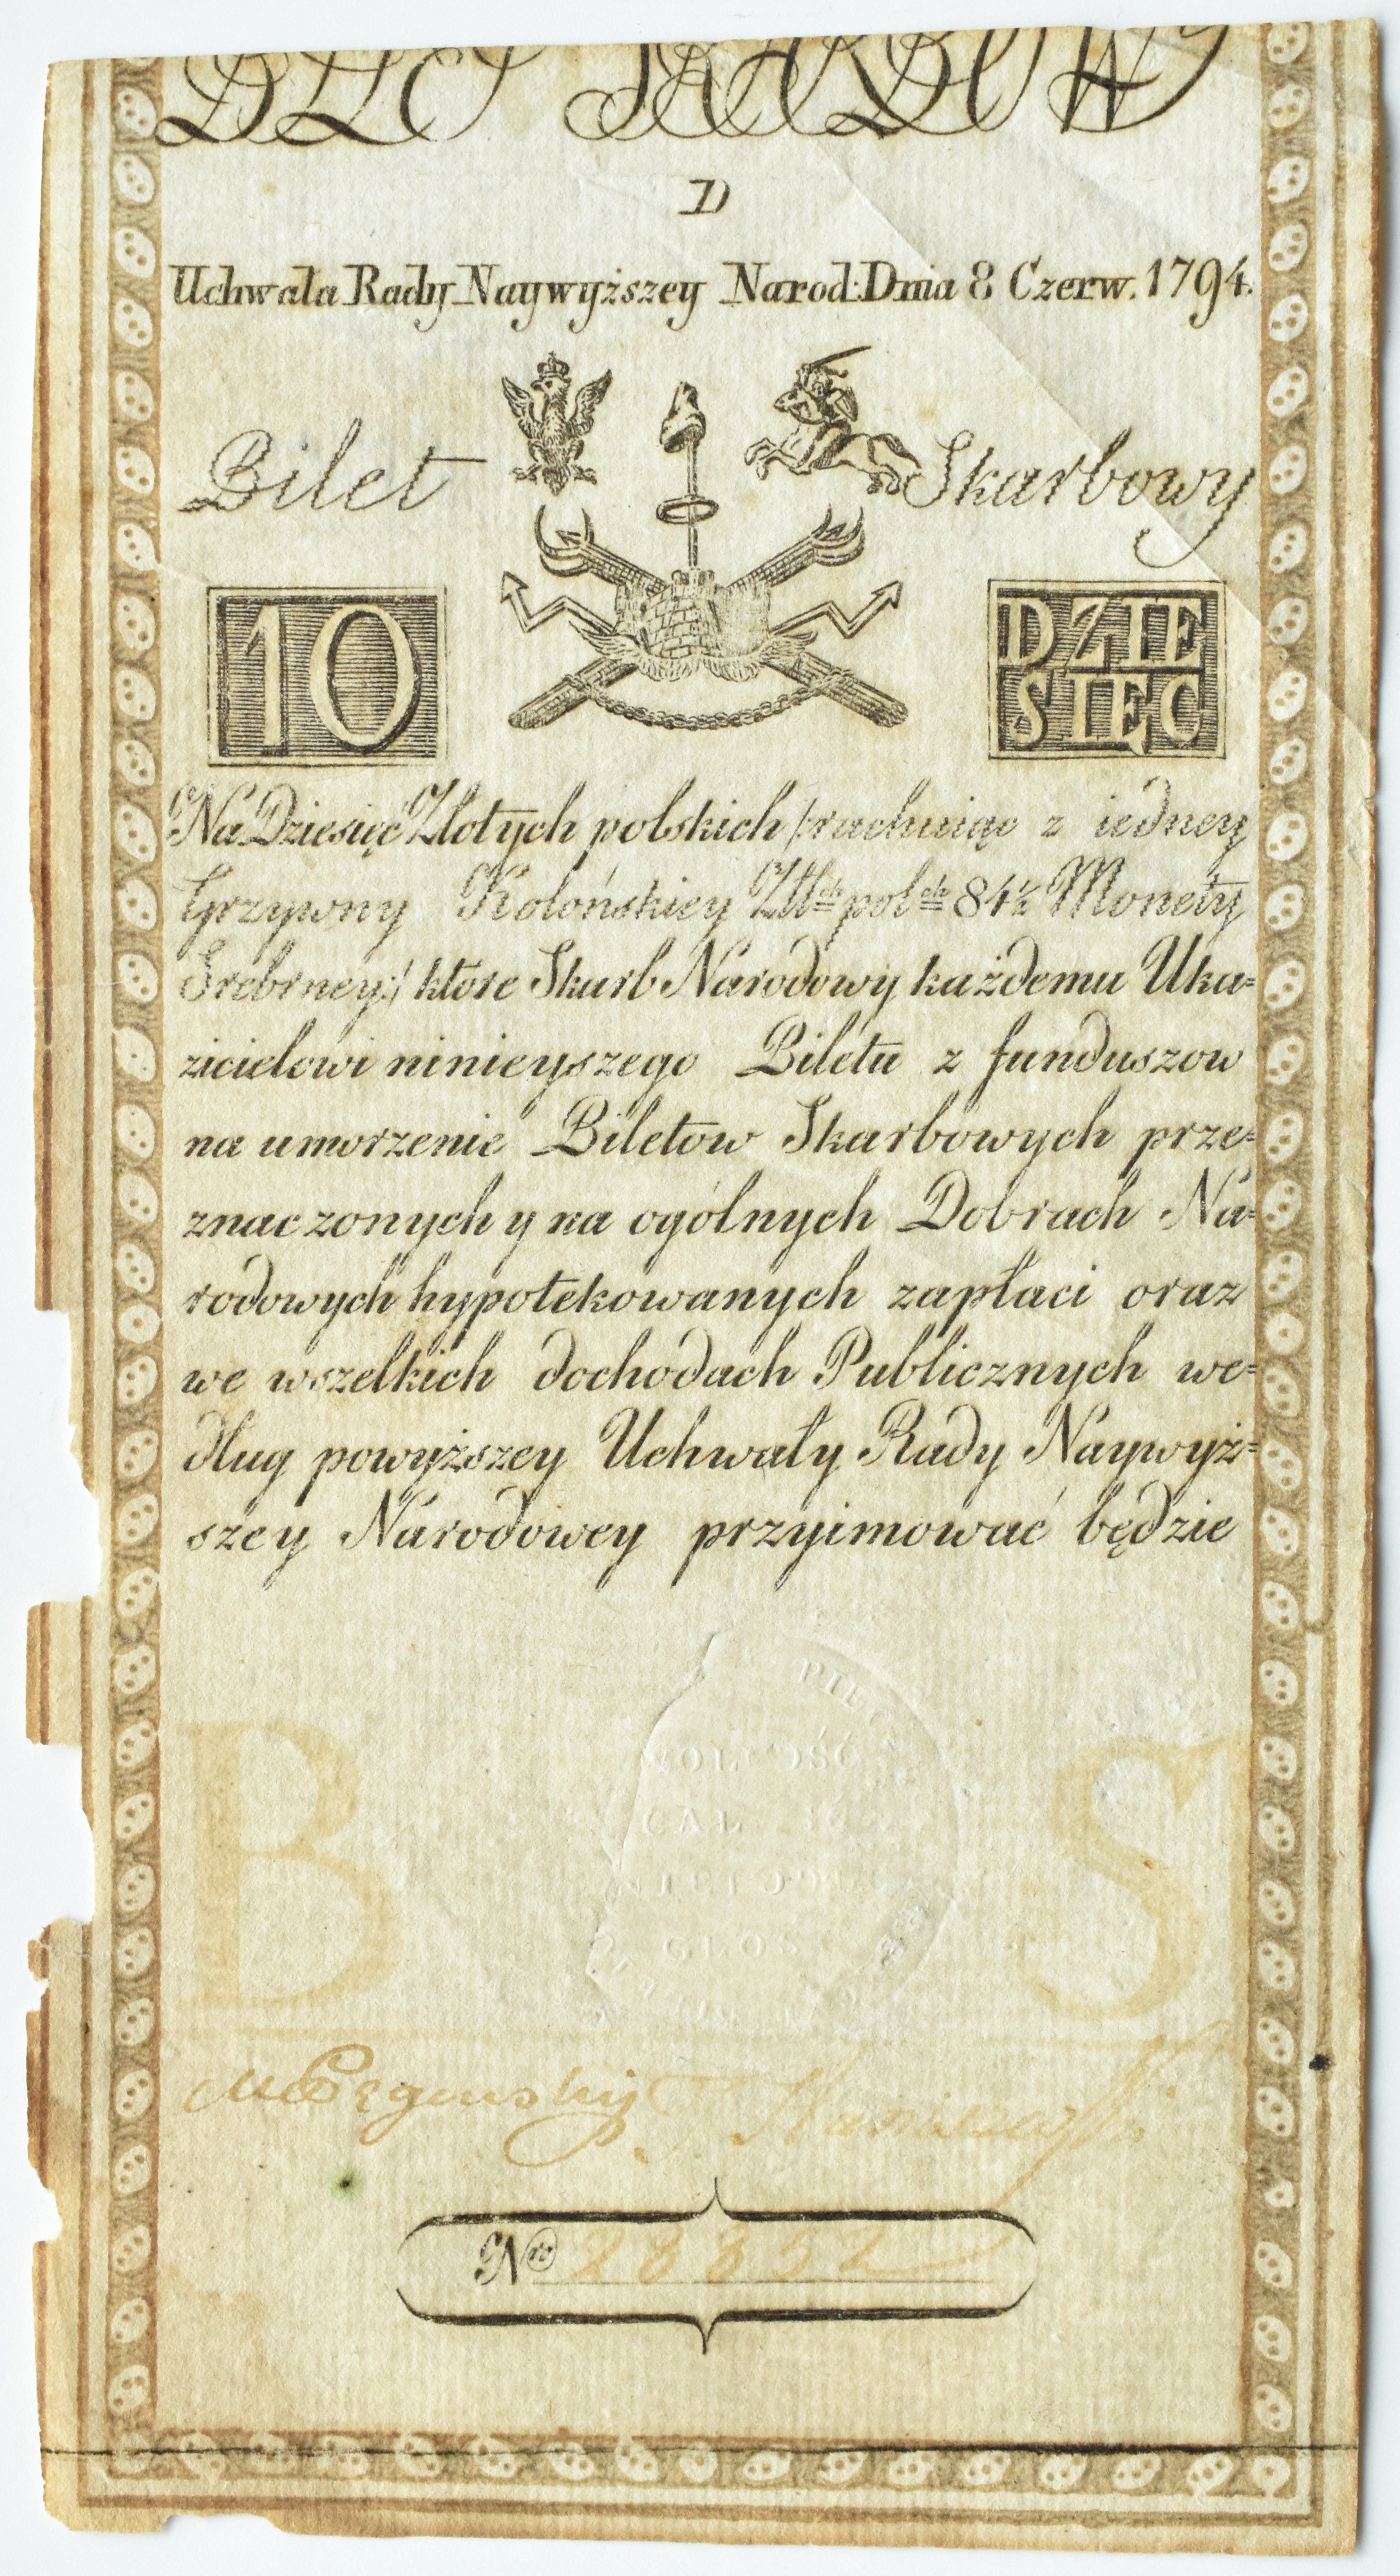 BLT SKARBOWY
D
Uchwala Rady Naywyższey Narod: Dnia 8 Czerw. 1794.
Bilet Skarbowy
10 DZIE
SIĘĆ
Na Dziesięć Złotych polskich /:rachuiąc z iedney
Grzywny Kolońskiey Złł^ch pol^ch 84½ Monety
Srebrney:/ ktore Skarb Narodowy każdemu Uka=
zicielowi ninieyszego Biletu z funduszow
na umorzenie Biletow Skarbowych prze=
znaczonych y na ogólnych Dobrach Na=
rodowych hypotekowanych zapłaci oraz
we wszelkich dochodach Publicznych we=
dług powyższey Uchwały Rady Naywyż=
szey Narodowey przyimować będzie
WOLNOŚĆ
CAŁ
GŁOS
B S
Nro 28852